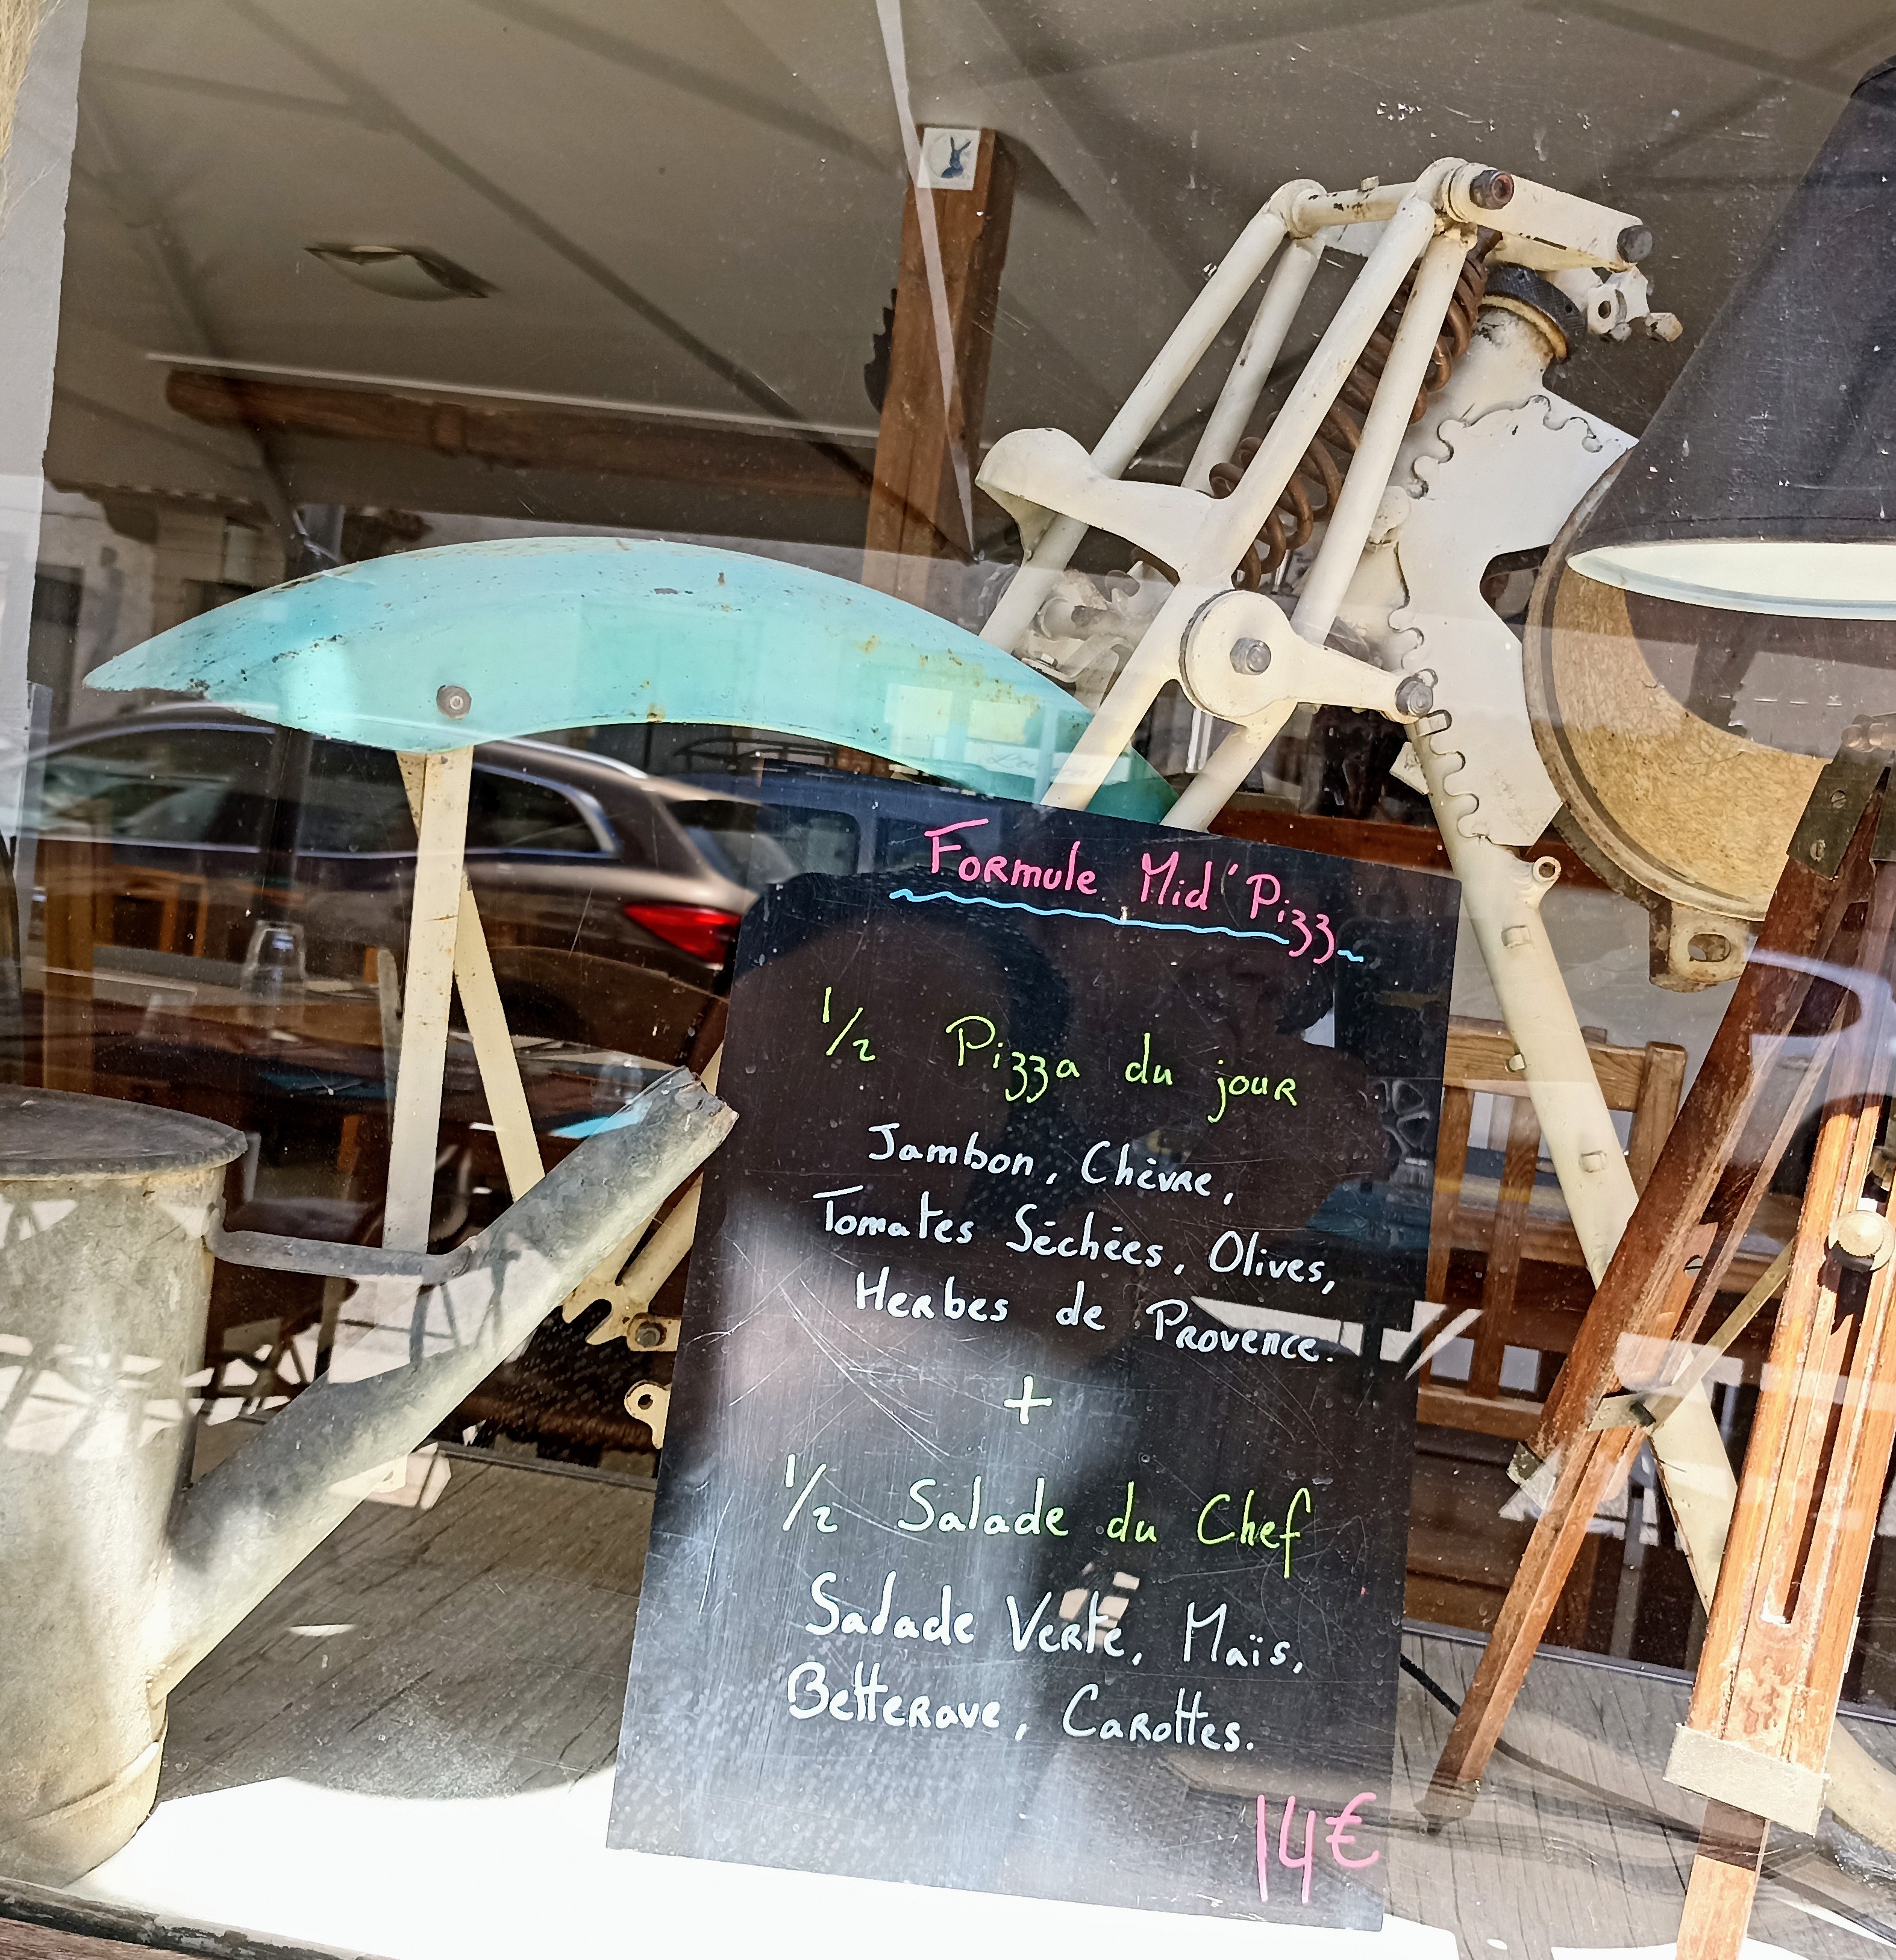 Formule Mid'Pizz
1/2 Pizza du jour
Jambon, Chèvre,
Tomates Séchées, Olives,
Herbes de Provence.
+
1/2 Salade du Chef
Salade Verte, Maïs,
Betterave, Carottes.
14€